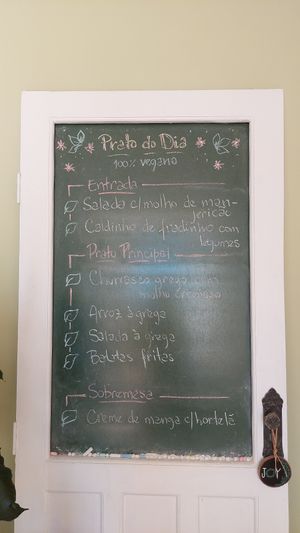 Prato do Dia
100% vegano
Entrada
Salada c/molho de man-
jericão
Caldinho de fradinho com
legumes
Prato Principal
Churrasco grego com
molho cremoso
Arroz à grega
Salada à grega
Batatas fritas
Sobremesa
Creme de manga c/hortelã
JOY